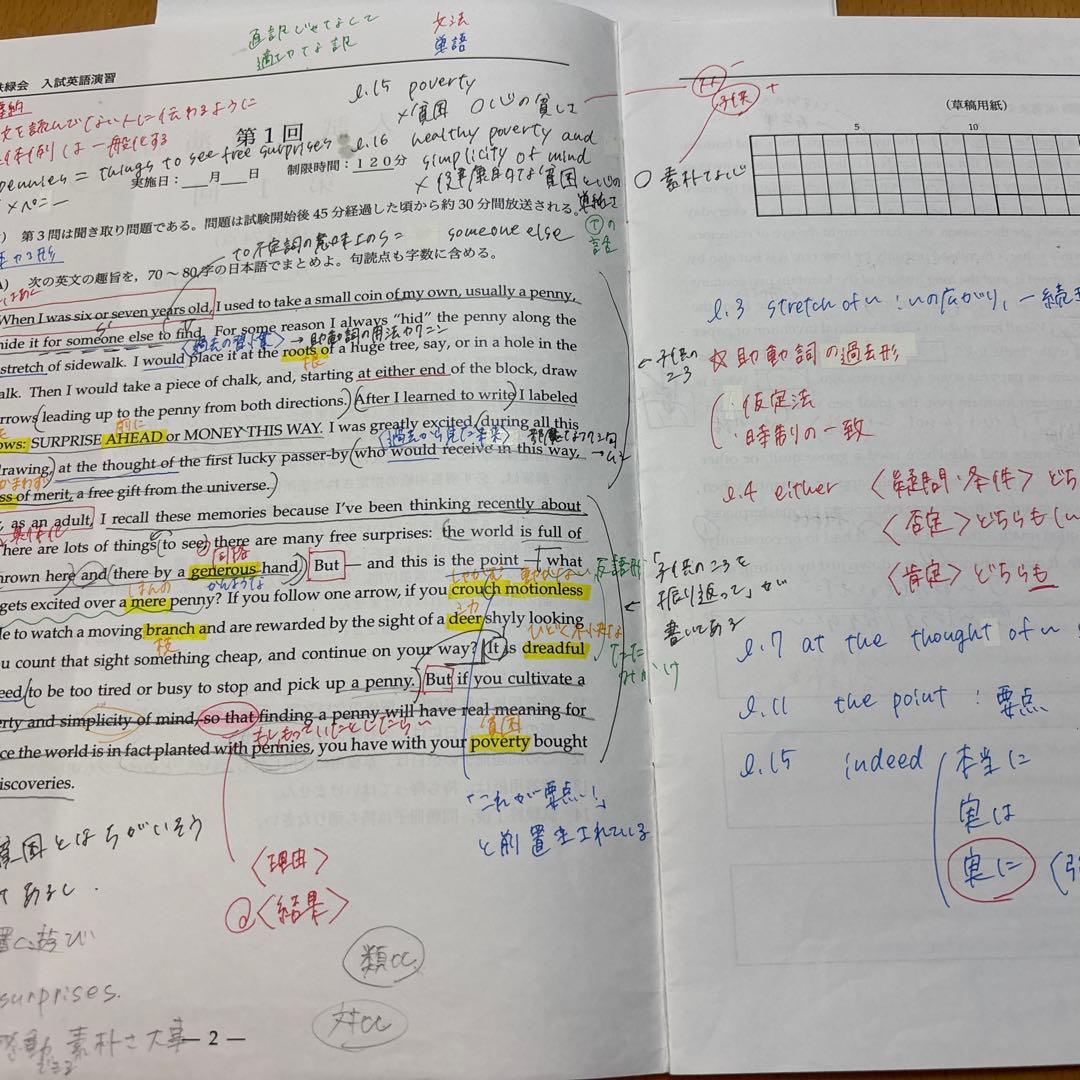 直訳じゃなくて
適切な訳
文法
単語
鉄緑会 入試英語演習
文を読んでない人に伝わるように
具体例は一般化する
pennies = things to see free surprises
×ペニー
第1回
実施日：___月___日 制限時間：120分
l.15 poverty
×貧困 ○心の貧して
l.16 healthy poverty and
simplicity of mind
× 健康的な貧困と心の
単純さ
someone else
to不定詞の意味上のS =
第3問は聞き取り問題である。問題は試験開始後45分経過した頃から約30分間放送される。
次の英文の趣旨を，70～80字の日本語でまとめよ。句読点も字数に含める。
When I was six or seven years old, I used to take a small coin of my own, usually a penny,
hide it for someone else to find. For some reason I always "hid" the penny along the
〈過去の習慣〉→助動詞の用法
stretch of sidewalk. I would place it at the roots of a huge tree, say, or in a hole in the
根
alk. Then I would take a piece of chalk, and, starting at either end of the block, draw
rrows leading up to the penny from both directions. After I learned to write I labeled
前に
ows: SURPRISE AHEAD or MONEY THIS WAY. I was greatly excited, during all this
〈過去から見た未来〉
drawing, at the thought of the first lucky passer-by who would receive in this way,
かまわず
ss of merit, a free gift from the universe.
as an adult, I recall these memories because I've been thinking recently about
具体化
here are lots of things to see, there are many free surprises: the world is full of
同格
hrown here and there by a generous hand. But — and this is the point — what
ほんの かんような しゃがむ 動かない 反語形
gets excited over a mere penny? If you follow one arrow, if you crouch motionless
シカ
le to watch a moving branch and are rewarded by the sight of a deer shyly looking
枝 ひどく
ou count that sight something cheap, and continue on your way? It is dreadful
eed to be too tired or busy to stop and pick up a penny. But if you cultivate a
erty and simplicity of mind, so that finding a penny will have real meaning for
貧困
ce the world is in fact planted with pennies, you have with your poverty bought
iscoveries.
貧困とはちがいそう
〈理由〉
〈結果〉
「これが要点！」
と前置きされている
類CC
対CC
surprises.
素朴さ大事
— 2 —
子供 +
○ 素朴な心
（草稿用紙）
5 10
l.3 stretch of n : nの広がり，一続き
← 子供の
ころ
☆助動詞の過去形
・仮定法
・時制の一致
l.4 either 〈疑問・条件〉どち
〈否定〉どちらも
〈肯定〉どちらも
「子供のころを
振り返って」が
書いてある
l.7 at the thought of n
l.11 the point : 要点
l.15 indeed 本当に
実は
実に